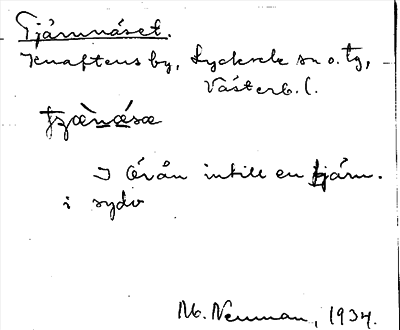 Tjärnnäset.
Knaftens by, Lycksele sn o. tg,
Västerb. l.
I Örån intill en tjärn.
i sydv
M. Neuman, 1934.